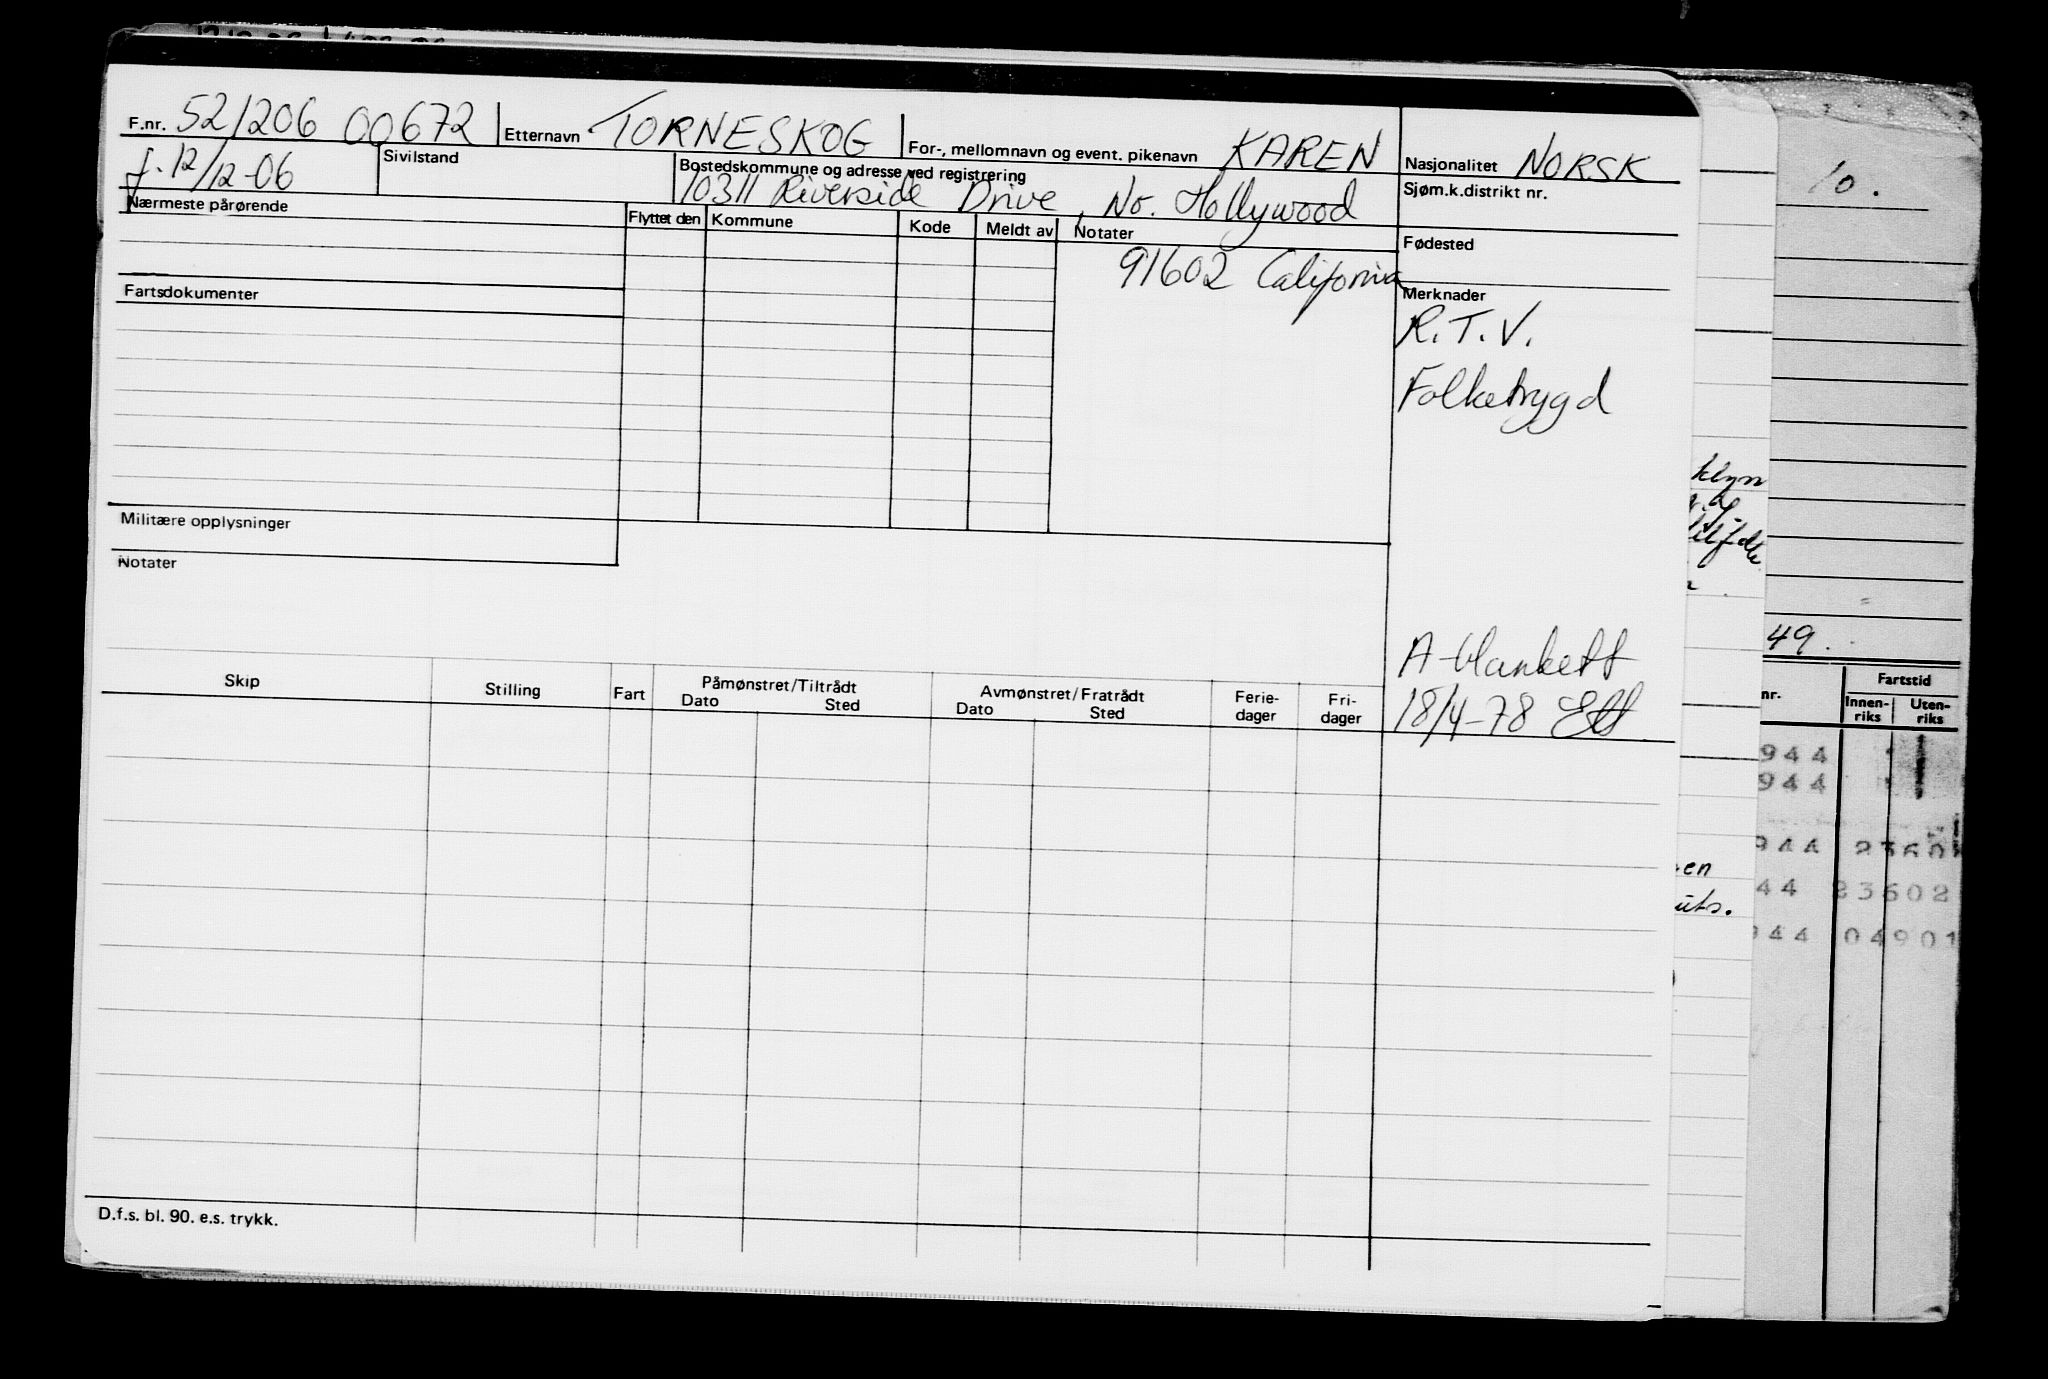 F.nr. 521206 00672 Etternavn TORNESKOG For-, mellomnavn og event. pikenavn KAREN Nasjonalitet NORSK
f. 12/12-06 Sivilstand Bostedskommune og adresse ved registrering Sjøm.k.distrikt nr.
10311 Riverside Drive, No. Hollywood
Nærmeste pårørende Flyttet den Kommune Kode Meldt av Notater Fødested
91602 California
Fartsdokumenter Merknader
R.T.V.
Folketrygd
klyn
Militære opplysninger
Notater
49.
A-blankett
Skip Stilling Fart Påmønstret/Tiltrådt Avmønstret/Fratrådt Ferie-dager Fri-dager
Dato Sted Dato Sted
18/4-78
nr. Fartstid
Innen-riks Uten-riks
10.
944
944
944
44 23602
944 04901
en
uts.
D.f.s. bl. 90. e.s. trykk.